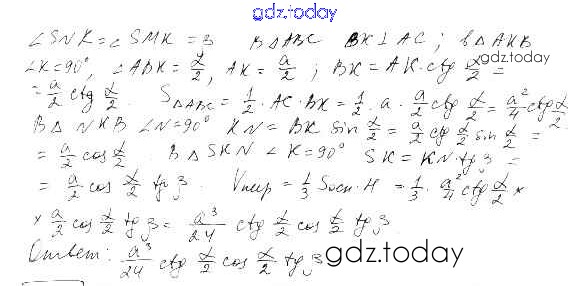 gdz.today
∠SNK = ∠SMK = β В △ABC BK ⊥ AC; в △AKB
∠K = 90°, ∠ABK = α/2, AK = a/2; BK = AK·ctg α/2 =
gdz.today
= a/2 ctg α/2. S△ABC = 1/2 · AC · BK = 1/2 · a · a/2 ctg α/2 = a²/4 ctg α/2
В △NKB ∠N = 90° KN = BK sin α/2 = a/2 ctg α/2 sin α/2 =
= a/2 cos α/2 В △SKN ∠K = 90° SK = KN · tg β =
= a/2 cos α/2 tg β. Vпир = 1/3 Sосн · H = 1/3 · a²/4 ctg α/2 ×
× a/2 cos α/2 tg β = a³/24 ctg α/2 cos α/2 tg β.
Ответ: a³/24 ctg α/2 cos α/2 tg β
gdz.today